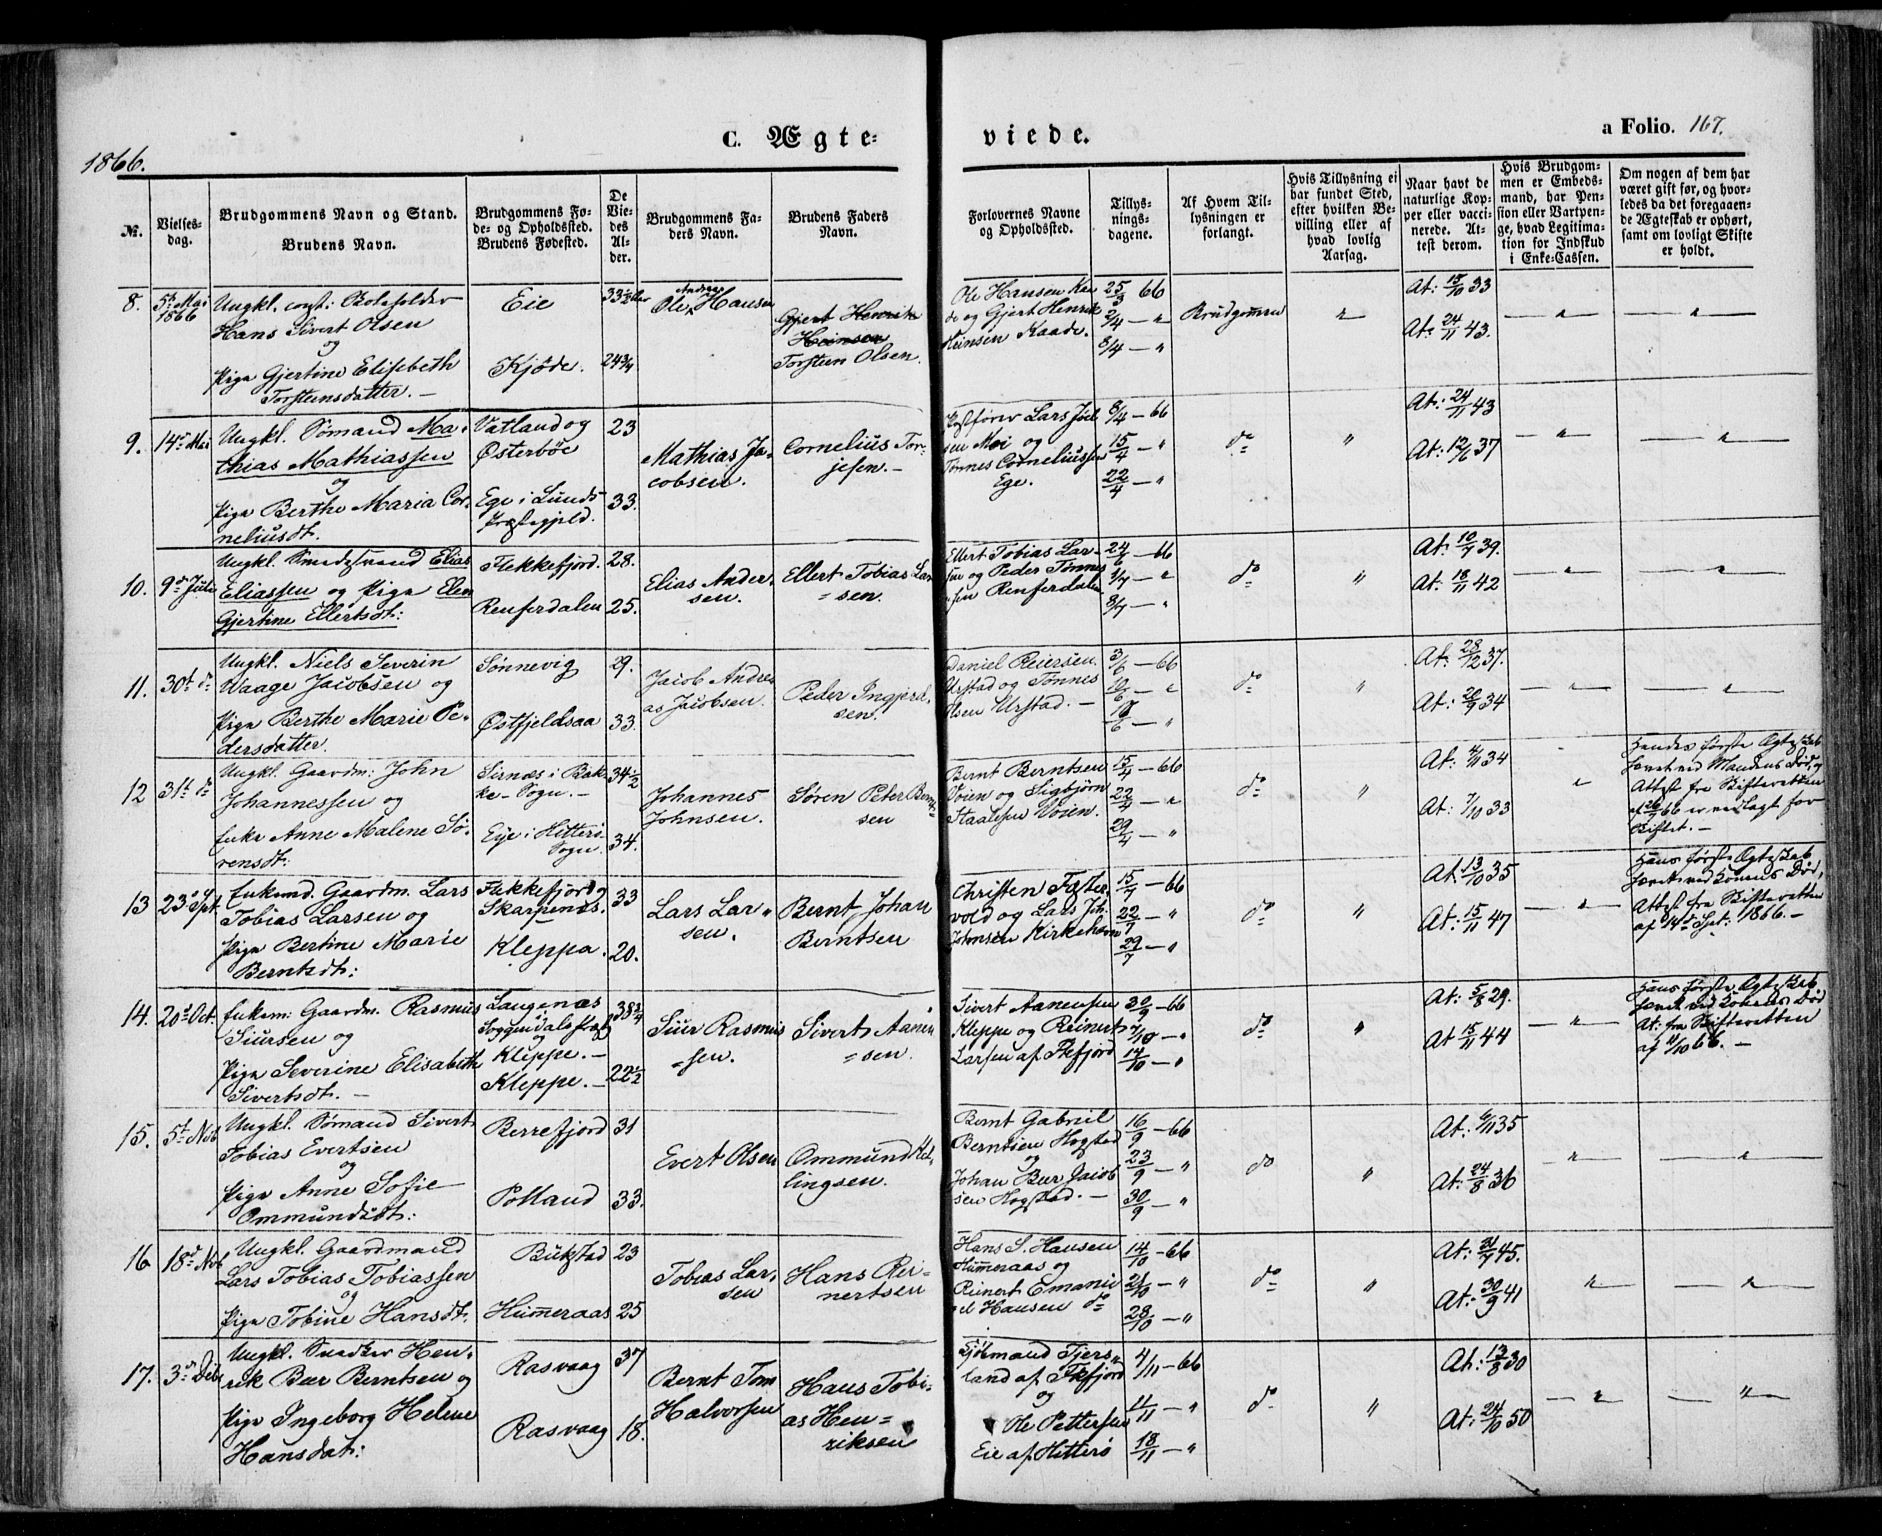 1866.
C. Ægte-
viede.
a Folio. 167.
№.
Vielses-
dag.
Brudgommens Navn og Stand.
Brudens Navn.
Brudgommens Fø-
de- og Opholdssted.
Brudens Fødested.
De
Vie-
des
Al-
der.
Brudgommens Fa-
ders Navn.
Brudens Faders
Navn.
Forlovernes Navne
og Opholdssted.
Tillys-
nings-
dagene.
Af Hvem Til-
lysningen er
forlangt.
Hvis Tillysning ei
har fundet Sted,
efter hvilken Be-
villing eller af
hvad lovlig
Aarsag.
Naar havt de
naturlige Kop-
per eller vacci-
nerede. At-
test derom.
Hvis Brudgom-
men er Embeds-
mand, har Pen-
sion eller Vartpen-
ge, hvad Legitima-
tion for Indskud
i Enke-Cassen.
Om nogen af dem har
været gift før, og hvor-
ledes da det foregaaen-
de Ægteskab er ophørt,
samt om lovligt Skifte
er holdt.
8.
5te Mai
1866
Ungkl. const: Skoleholder
Hans Sivert Olsen
og
Pige Gjertine Elisebeth
Torsteinsdatter. —
Eie
Kjøde.
33½
24¾
Andreas
Ole Hansen
Gjert Henrik
Heinsen
Torstein Olsen.
Ole Hansen Kaa-
de og Gjert Henrik
Heinsen Kaade.
25/3 66
2/4 — "
8/4 — "
Brudgommen
"
At: 15/10 33
At: 24/11 43.
— " —
— " —
9.
14de Mai
Ungkl. Sømand Ma-
thias Mathiassen
og
Pige Berthe Maria Cor-
neliusdt.
Vatland og
Østerbøe
Ege i Lunds
Præstegjeld.
23
33.
Mathias Ja-
cobsen.
Cornelius Tor-
jesen. —
Postfører Lars Joel
sen Moi og
Tønnes Corneliussen
Ege.
8/4 — 66
15/4 — "
22/4 — "
do
"
At: 24/11 43
At: 12/6 37
— " —
— " —
10.
9de Juli
Ungkl. Smedsvend Elias
Eliassen og Pige Elen
Gjertine Ellertsdt:
Flekkefjord.
Renferdalen
28.
25.
Elias Ander-
sen.
Ellert Tobias Lar
= sen.
Ellert Tobias Lar-
sen og Peder Tønnes
sen Renferdalen
24/6 — 66
1/7 — "
8/7 — "
do
"
At: 10/7 39.
At: 18/11 42
— " —
— " —
11.
30te do
Ungkl. Niels Severin
Waage Jacobsen og
Pige Berthe Marie Pe-
dersdatter.
Sønnevig
Østfjeldsaa
29.
33.
Jacob Andre
as Jacobsen.
Peder Ingjerd-
sen.
Daniel Reiersen
Urstad og Tønnes
Olsen Urstad. —
3/6 — 66
10/6 — "
17/6 — "
do
"
At: 28/12 37.
At: 20/9 34
— " —
— " —
12
31te do
Ungkl. Gaardm: John
Johannessen og
Enke Anne Malene Sø-
rensdt:
Sirnæs i Bak-
ke- Sogn. —
Eye i Hitterø
Sogn.
34½
34.
Johannes
Johnsen.
Søren Peter Bernt
sen
Bernt Berntsen
Voien og Sigbjørn
Staalesen Voien.
15/4 — 66
22/4 — "
29/4 — "
do
"
At: 4/11 34
At: 7/10 33
"
Hendes første Ægteskab
hævet ved Mandens Død, og
Attest fra Skifteretten
af 26/7 66 er vedlagt for
Skiftet. —
13
23de Spt.
Enkemd. Gaardm. Lars
Tobias Larsen og
Pige Bertine Marie
Berntsdt:
Flekkefjord og
Skarpenæs.
Kleppa.
33
20.
Lars Lar-
sen.
Bernt Johan
Berntsen
Christen Fæster-
vold og Lars Joh.
Johnsen Kirkehavn
15/7 — 66
22/7 — "
29/7 — "
do
"
At: 13/10 35
At: 15/11 47
— " —
Hans første Ægteskab
hævet ved Konens Død,
Attest fra Skifteretten
af 14de Spt: 1866. —
14.
20de Oct.
Enkem: Gaardm. Rasmus
Siursen og
Pige Severine Elisabeth
Sivertsdt. —
Laugenæs
i
Soggendals Præstg
og
Kleppe. —
Kleppe. —
38¾
22½
Siur Rasmus
=sen.
Sivert Aanen
=sen.
Sivert Aanensen
Kleppe og Reinert
Larsen af Fkfjord
30/9 — 66
7/10 — "
14/10 — "
do
"
At: 5/8 29.
At 15/11 44
— " —
Hans første Ægteskab
hævet ved Konens Død
At: fra Skifteretten
af 11/10 66. —
15.
5te Nob
Ungkl. Sømand Sivert
Tobias Evertsen
og
Pige Anne Sofie
Ommundsdt:
Berrefjord
Polland
31
33.
Evert Olsen
Ommund Kel-
lingsen.
Bernt Gabriel
Berntsen Hogstad
og
Johan Beer Jacob
sen Hogstad. —
16/9 — 66
23/9 — "
30/9 — "
do
"
At: 6/11 35
At: 24/8 36
— " —
— " —
16
18de Nob
Ungkl. Gaardmand
Lars Tobias Tobiassen
og
Pige Tobine Hansdt.
Bukstad
Hummeraas
23
25
Tobias Lar-
sen
Hans Rei-
nertsen
Hans S. Hansen
Hummeraas og
Reinert Emanu-
el Hansen do
14/10 — 66
21/10 — "
28/10 — "
do
"
At: 21/7 45.
At: 30/9 41
"
"
17.
3de Deb
Ungkl. Snedker Hen-
rik Beer Berntsen og
Pige Ingeborg Helene
Hansdat:
Rasvaag
Rasvaag
37
18.
Bernt Tom
Halvorsen
Hans Tobi-
as Hen=
riksen
Fjølmand Tjers-
land af Fkfjord
og
Ole Pettersen
Eie af Hitterø
4/11 — 66
11/11 — "
18/11 — "
do
"
At: 13/8 30
At: 24/10 50
— " —
— " —